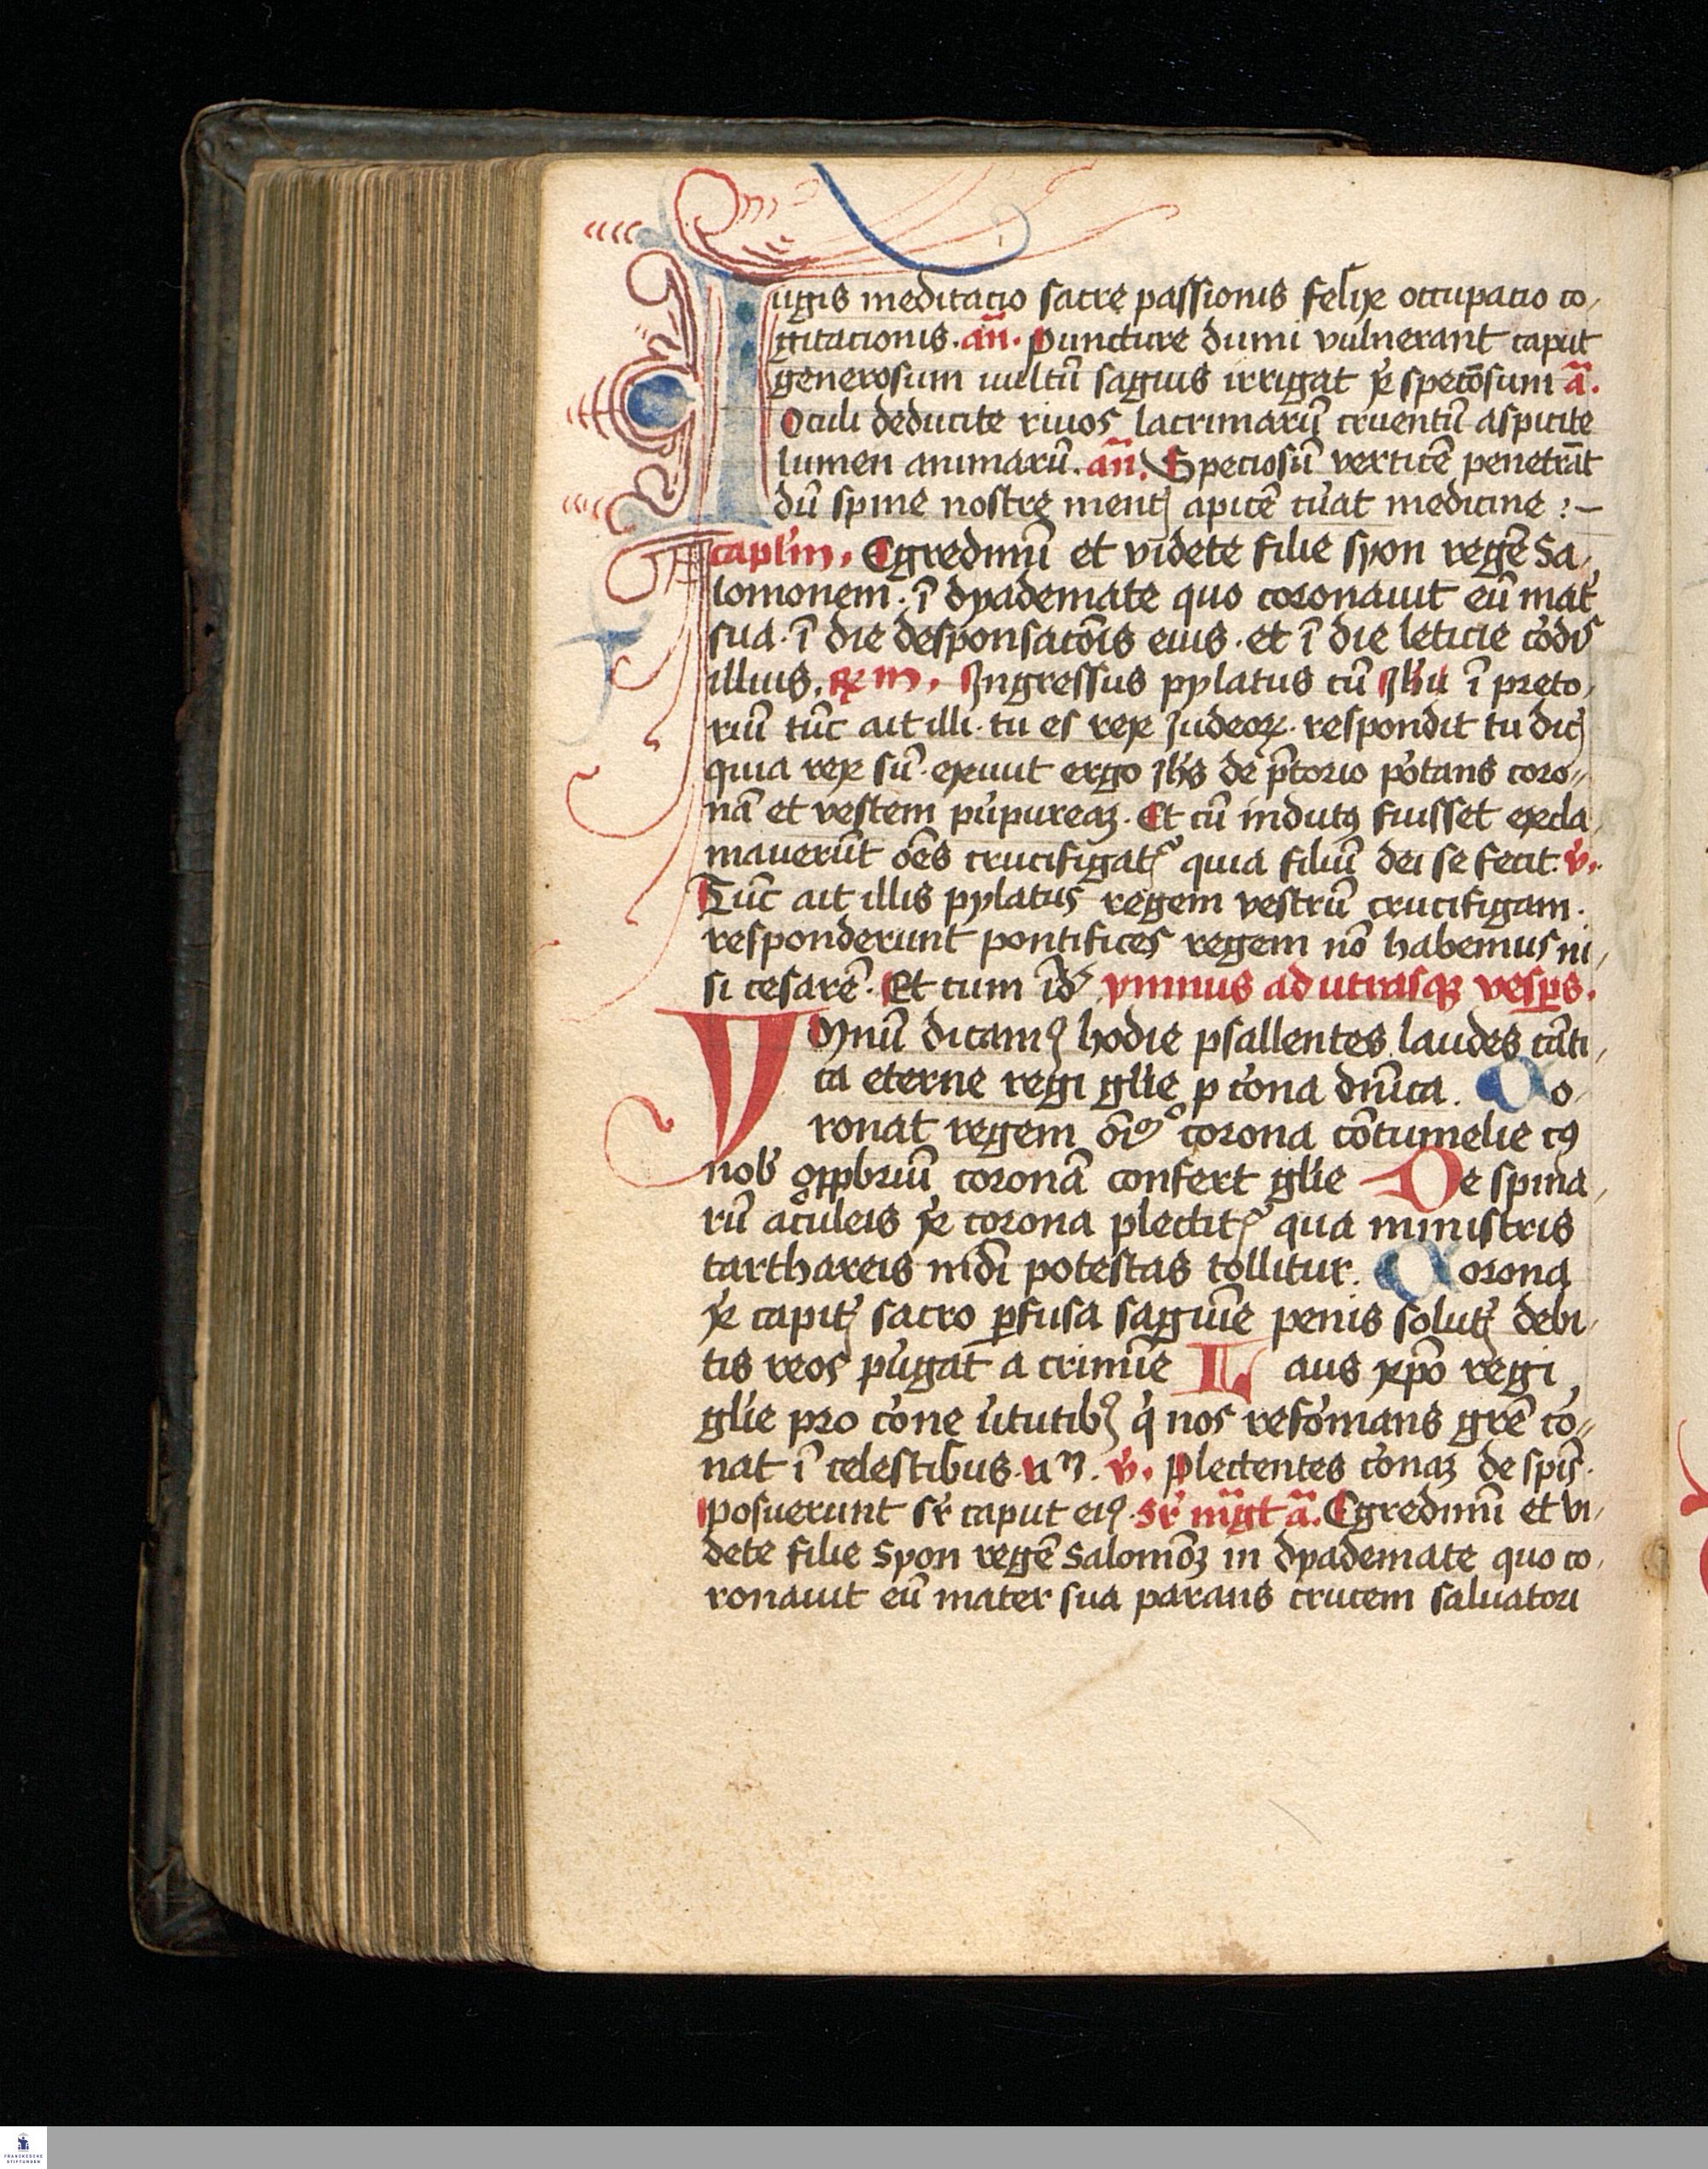 Iugis meditacio sacre passionis felix occupacio co,
gitacionis. an̄. Puncture dumi vulnerant caput
generosum uultū sāgīs irrigat xp̄i specōsum ā.
Oculi deducite riuos lacrimarū cruentū aspicite
lumen animarū. an̄. Speciosū verticē penetrāt
dū spine nostre mentꝭ apicē curāt medicine :–
caplm̄. Egredimī et videte filie syon regē Sa,
lomonem. ī dyademate quo coronauit eū mat̄
sua. ī die desponsacōis eius. et ī die leticie cordꝭ
illius. Ingressus pylatus cū Jhū ī preto,
riū tūc ait illi. tu es rex Judeoꝝ. respondit tu dicꝭ
quia rex sū. exiuit ergo Jhs̄ de p̄torio portans coro„
nā et vestem purpureaꝫ. Et cū indutꝰ fuisset excla,
mauerūt oēs crucifigatᷣ quia filiū dei se fecit. v̄.
Tūc ait illis pylatus regem vestrū crucifigam.
responderunt pontifices regem nō habemus ni,
si cesarē. Et cum īd ymnus ad utrasqꝫ vesꝑs.
Ymnū dicamꝰ hodie psallentes laudes cāti,
ca eterne regi gl̄ie p corona dn̄ica. Co-
ronat regem corona cōtumelie cꝰ
nob̄ oꝓpbriū coronā confert gl̄ie De spina,
rū aculeis xp̄e corona plectitᷣ qua ministris
tarthareis mūdi potestas tollitur. Corona
xp̄e capitꝭ sacro ꝑfusa sāgūīe penis solutꝭ debi,
tis reos purgat a crimīe Laus xp̄o regi
gl̄ie pro corone virtutibꝰ qͥ nos reformans grē co„
nat ī celestibus. am̄. v̄. Plectentes coronaꝫ de spīs.
posuerunt sr̄ caput eiꝰ. Sr̄ mḡt ā. Egredimī et vi,
dete filie Syon regē Salomōꝫ in dyademate quo co,
ronauit eū mater sua parans crucem saluatori
FRANCKESCHE
STIFTUNGEN